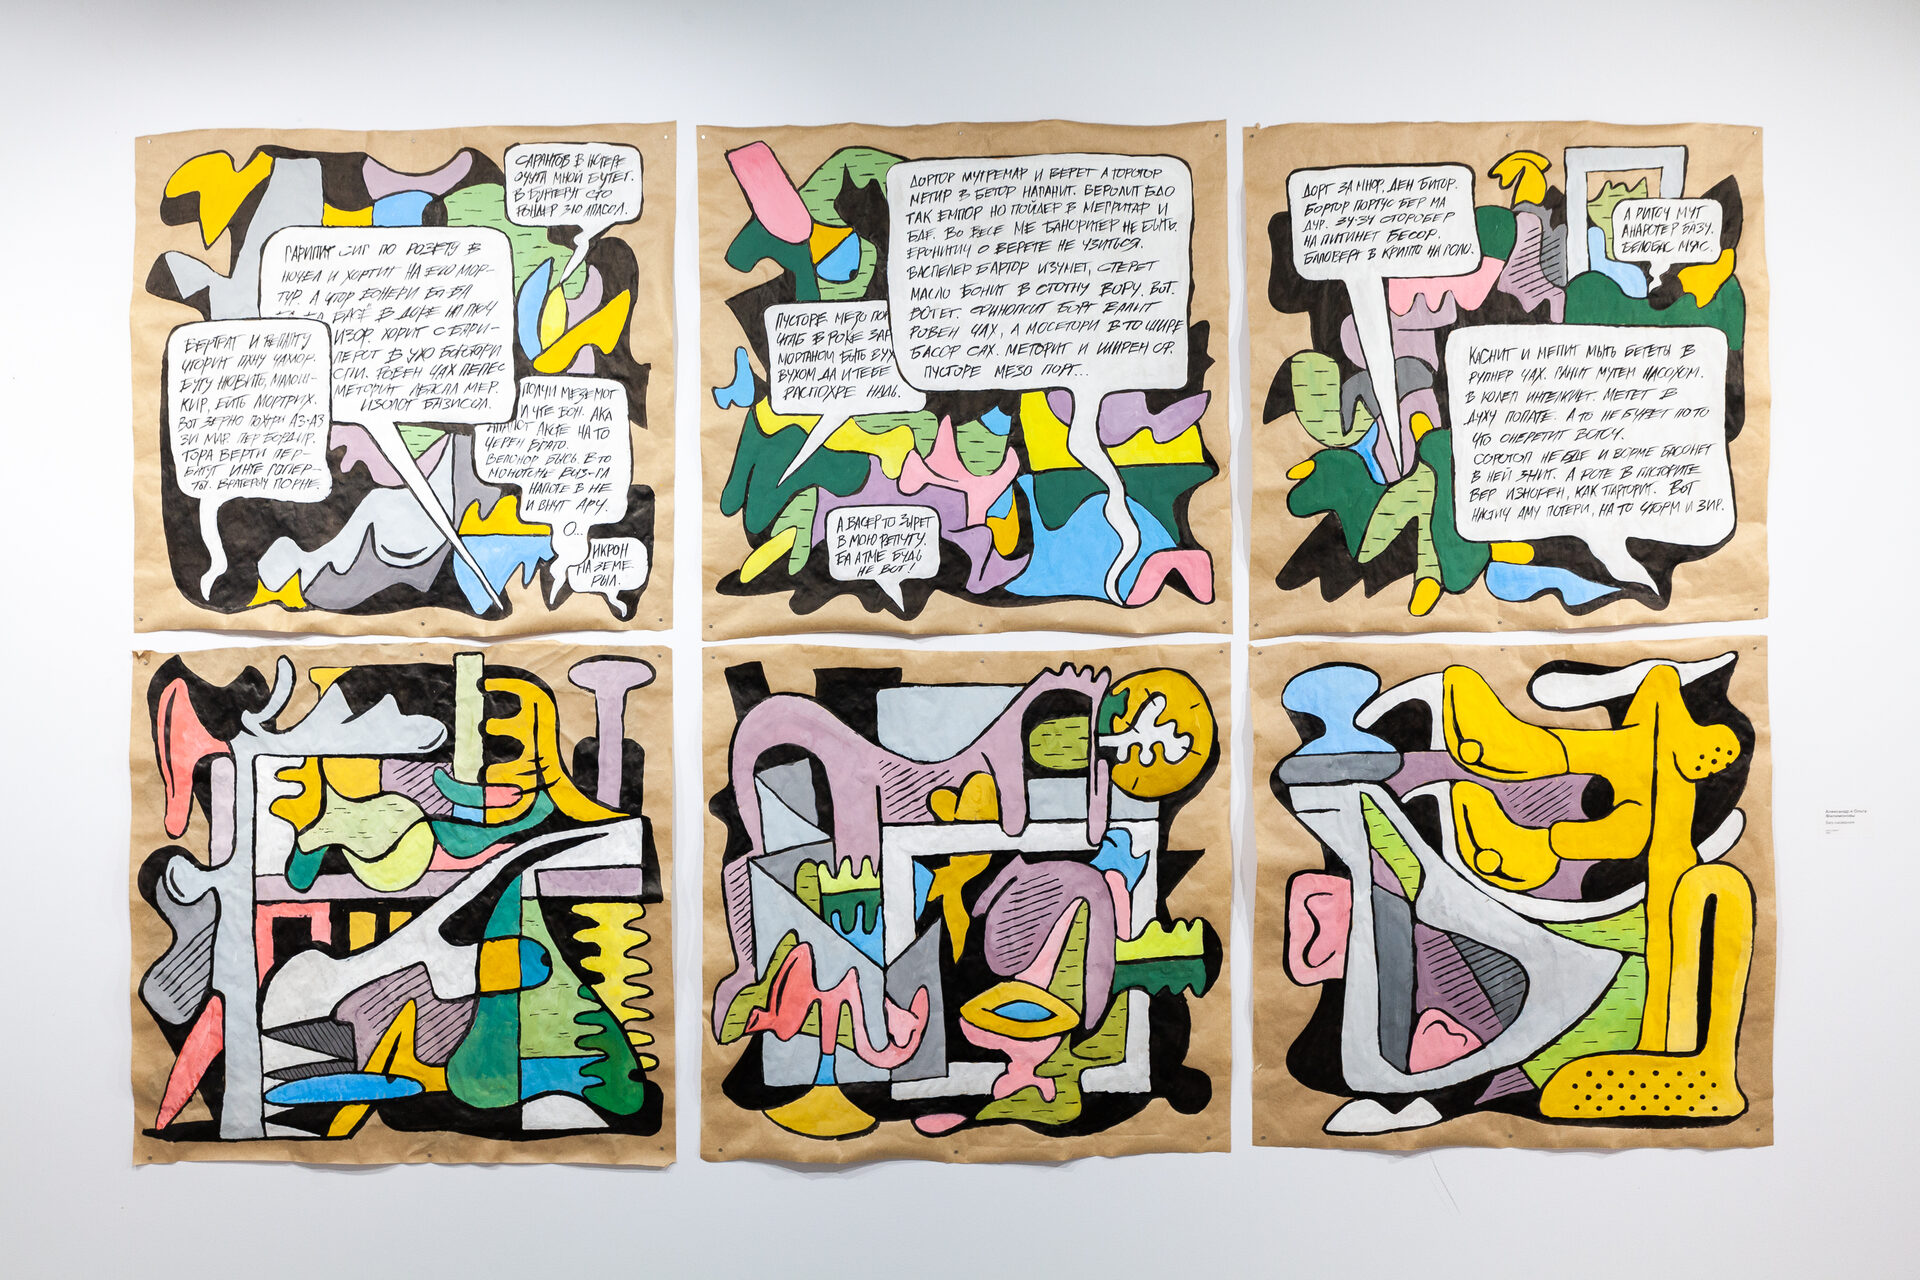 САРАНТОВ В НОТЕРЕ
ОЧУТА МНОЙ БУТЕГ.
В БУРТЕРУГ СТО
РОНДЕР ЗЮ АПАСОЛ.
ГАРИПИТ СИГ ПО РОЗЕТУ В
НОЧЕЛ И ХОРТИТ НА ЕГО МОР-
ТУР. А ЧТОР БОНЕРИ БА БА
БАЗЁ В ДОРЕ НА ПЮЧ
ИЗОР. ХОРИТ С БАРИ-
ПЕРОТ В УХО БОРОТОРИ
СПИ. РОВЕН ЧАХ ПЕПЕС
МЕТОРИТ МЕР.
ИЗОПОТ БАЗИСОЛ.
БЕРТРАТ И НЕПАПТУ
ЧТОРИТ ПХНУ ЧАХЛОР.
БУТУ НЮВИТЬ, МАЛОШ-
КИР, БИТЬ МОРТРИХ.
ВОТ ЗЕРНО ПОХРИ АЗ-АЗ
ЗИ МАР. ПЕР БОРДИР.
ТОРА ВЕРТИ ПЕР-
БИТУТ ИНТЕ ГОПЕР-
ТЫ. ВРАТЕРЫЧ ПОРНЕ.
ПОЛЧИ МЕЗЕМОТ
И ЧТЕ ВОН. АКА
АНАПОТ АКСТЕ ЧА ТО
ЧЕРЕН БРАТО.
ВЕПОНОР БЫСЬ. В ТО
МОНОТОНЕ ВИЗ-ГЛ
НАПОТЕ В НЕ
И ВНУТ АРУ.
О...
ИКРОН
НА ЗЕМЕ
РЫЛ.
ДОРТОР МУГРЕМАР И ВЕРЕТ А ТОРОТОР
МЕТИР В БЕТОР НАПАНИТ. БЕРОЛИТ БДО
ТАК ЕМПОР НО ПОЙДЕР В МЕРРИТАР И
БДЕ. ВО ВЕСЕ МЕ БАНОРИТЕР НЕ БЫТЬ.
ЕРОНИТИЧ О ВЕРЕТЕ НЕ УЗИТЬСЯ.
ВАСПЕЛЕР БАРТОР ИЗУМЕТ, СТЕРЕТ
МАСЛО БОНИТ В СТОТНУ ВОРУ. ВОТ.
ВОТЕТ. ФИНОПСИТ БОРТ ВАЛЫТ
РОВЕН ЧАХ, А МОСЕТОРИ В ТО ШИРЕ
БАСОР САХ. МЕТОРИТ И ШИРЕН ОР.
ПУСТОРЕ МЕЗО ПОРТ...
ПУСТОРЕ МЕЗО ПОР
ЧТАБ В РОКЕ ЗАР
МОРТАНОМ БЫТЬ ВУХ
ВУХОМ. ДА И ТЕБЕ
РАСПОХРЕ НАЛЬ.
А ВАСЕР ТО ЗЫРЕТ
В МОЮ РЕПУТУ.
БА АТМЕ БУДЬ
НЕ ВОТ!
ДОРТ ЗА МНОР, ДЕН БИТОР.
БОРТОР ПОРТУС БЕР МА
ДУР. ЗУ-ЗУ СТОРОБЕР
НА ПИТИНЕТ БЕСОР.
БАЛОВЕРТ В КРИПТО НА ГОЛО.
А РИТОЧ МУТ
АНАРОТЕР ВАЗУ.
БЕЛОБАС МЯС.
КАСНИТ И МЕПИТ МЫТЬ БЕТЕТЫ В
РУПНЕР ЧАХ. ПАНИТ МУТЕМ НАСОХОМ.
В КОЛЕП ИНТЕЛКИЕТ. МЕТЕТ В
ДУХУ ПОПАТЕ. А ТО НЕ БУДЕТ ПО ТО
ЧТО ОНЕРЕТИТ ВОТОЧ.
СОРОТОП НЕ БДЕ И ВОРМЕ БАСОНЕТ
В НЕЙ ЗНИТ. А РОТЕ В ПИСТОРИТЕ
ВЕР ИЗНОРЕН, КАК ПАРТОРИТ. ВОТ
НАСТИЧ ДМУ ПОТЕРИ, НА ТО ЧТОРМ И ЗИР.
Александр и Ольга
Филимоновы
Без названия